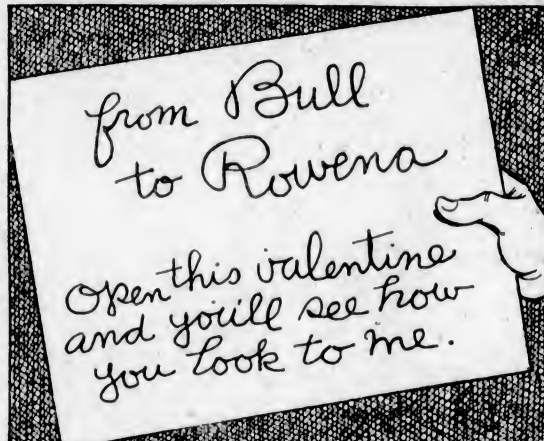 from Bull
to Rowena
Open this valentine
and you'll see how
you look to me.